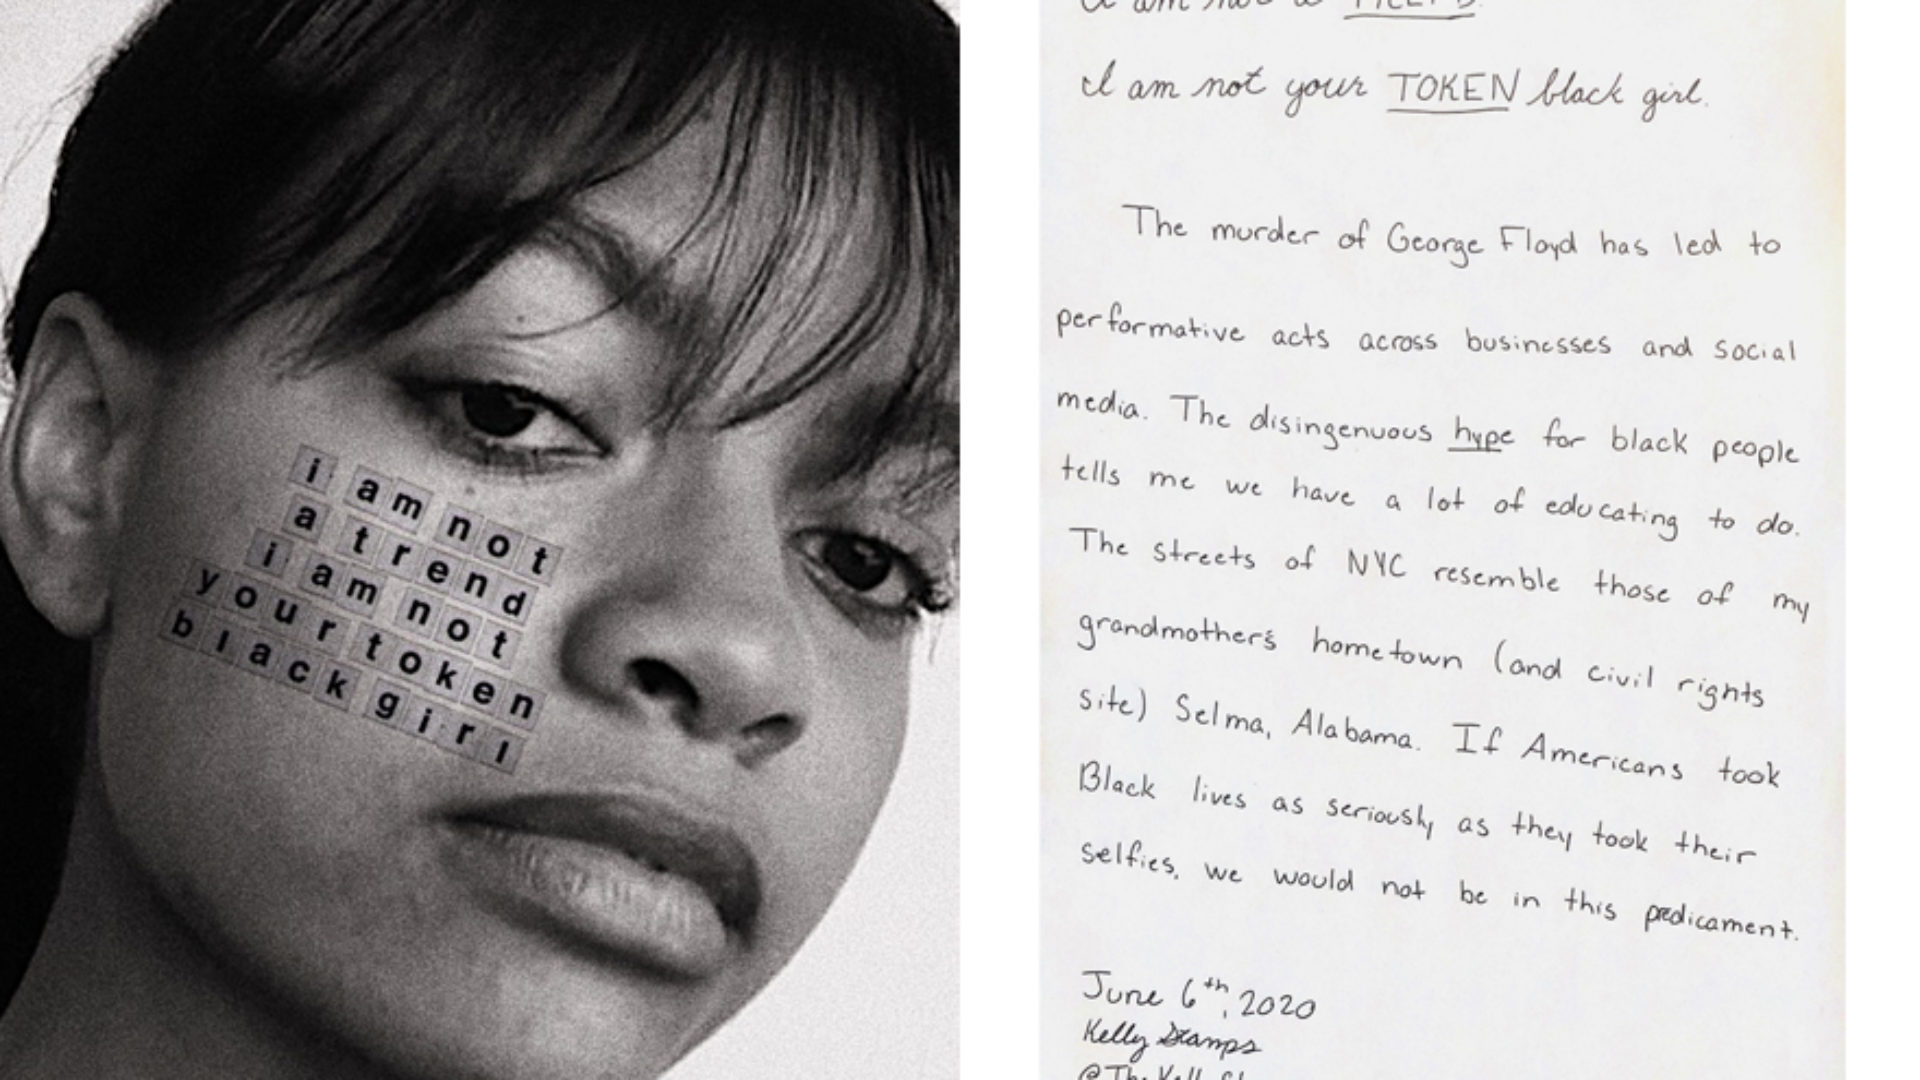 i am not
a trend
i am not
your token
black girl
I am not a
I am not your TOKEN black girl.
The murder of George Floyd has led to
performative acts across businesses and social
media. The disingenuous hype for black people
tells me we have a lot of educating to do.
The streets of NYC resemble those of my
grandmother's hometown (and civil rights
site) Selma, Alabama. If Americans took
Black lives as seriously as they took their
selfies, we would not be in this predicament.
June 6th, 2020
Kelly Stamps